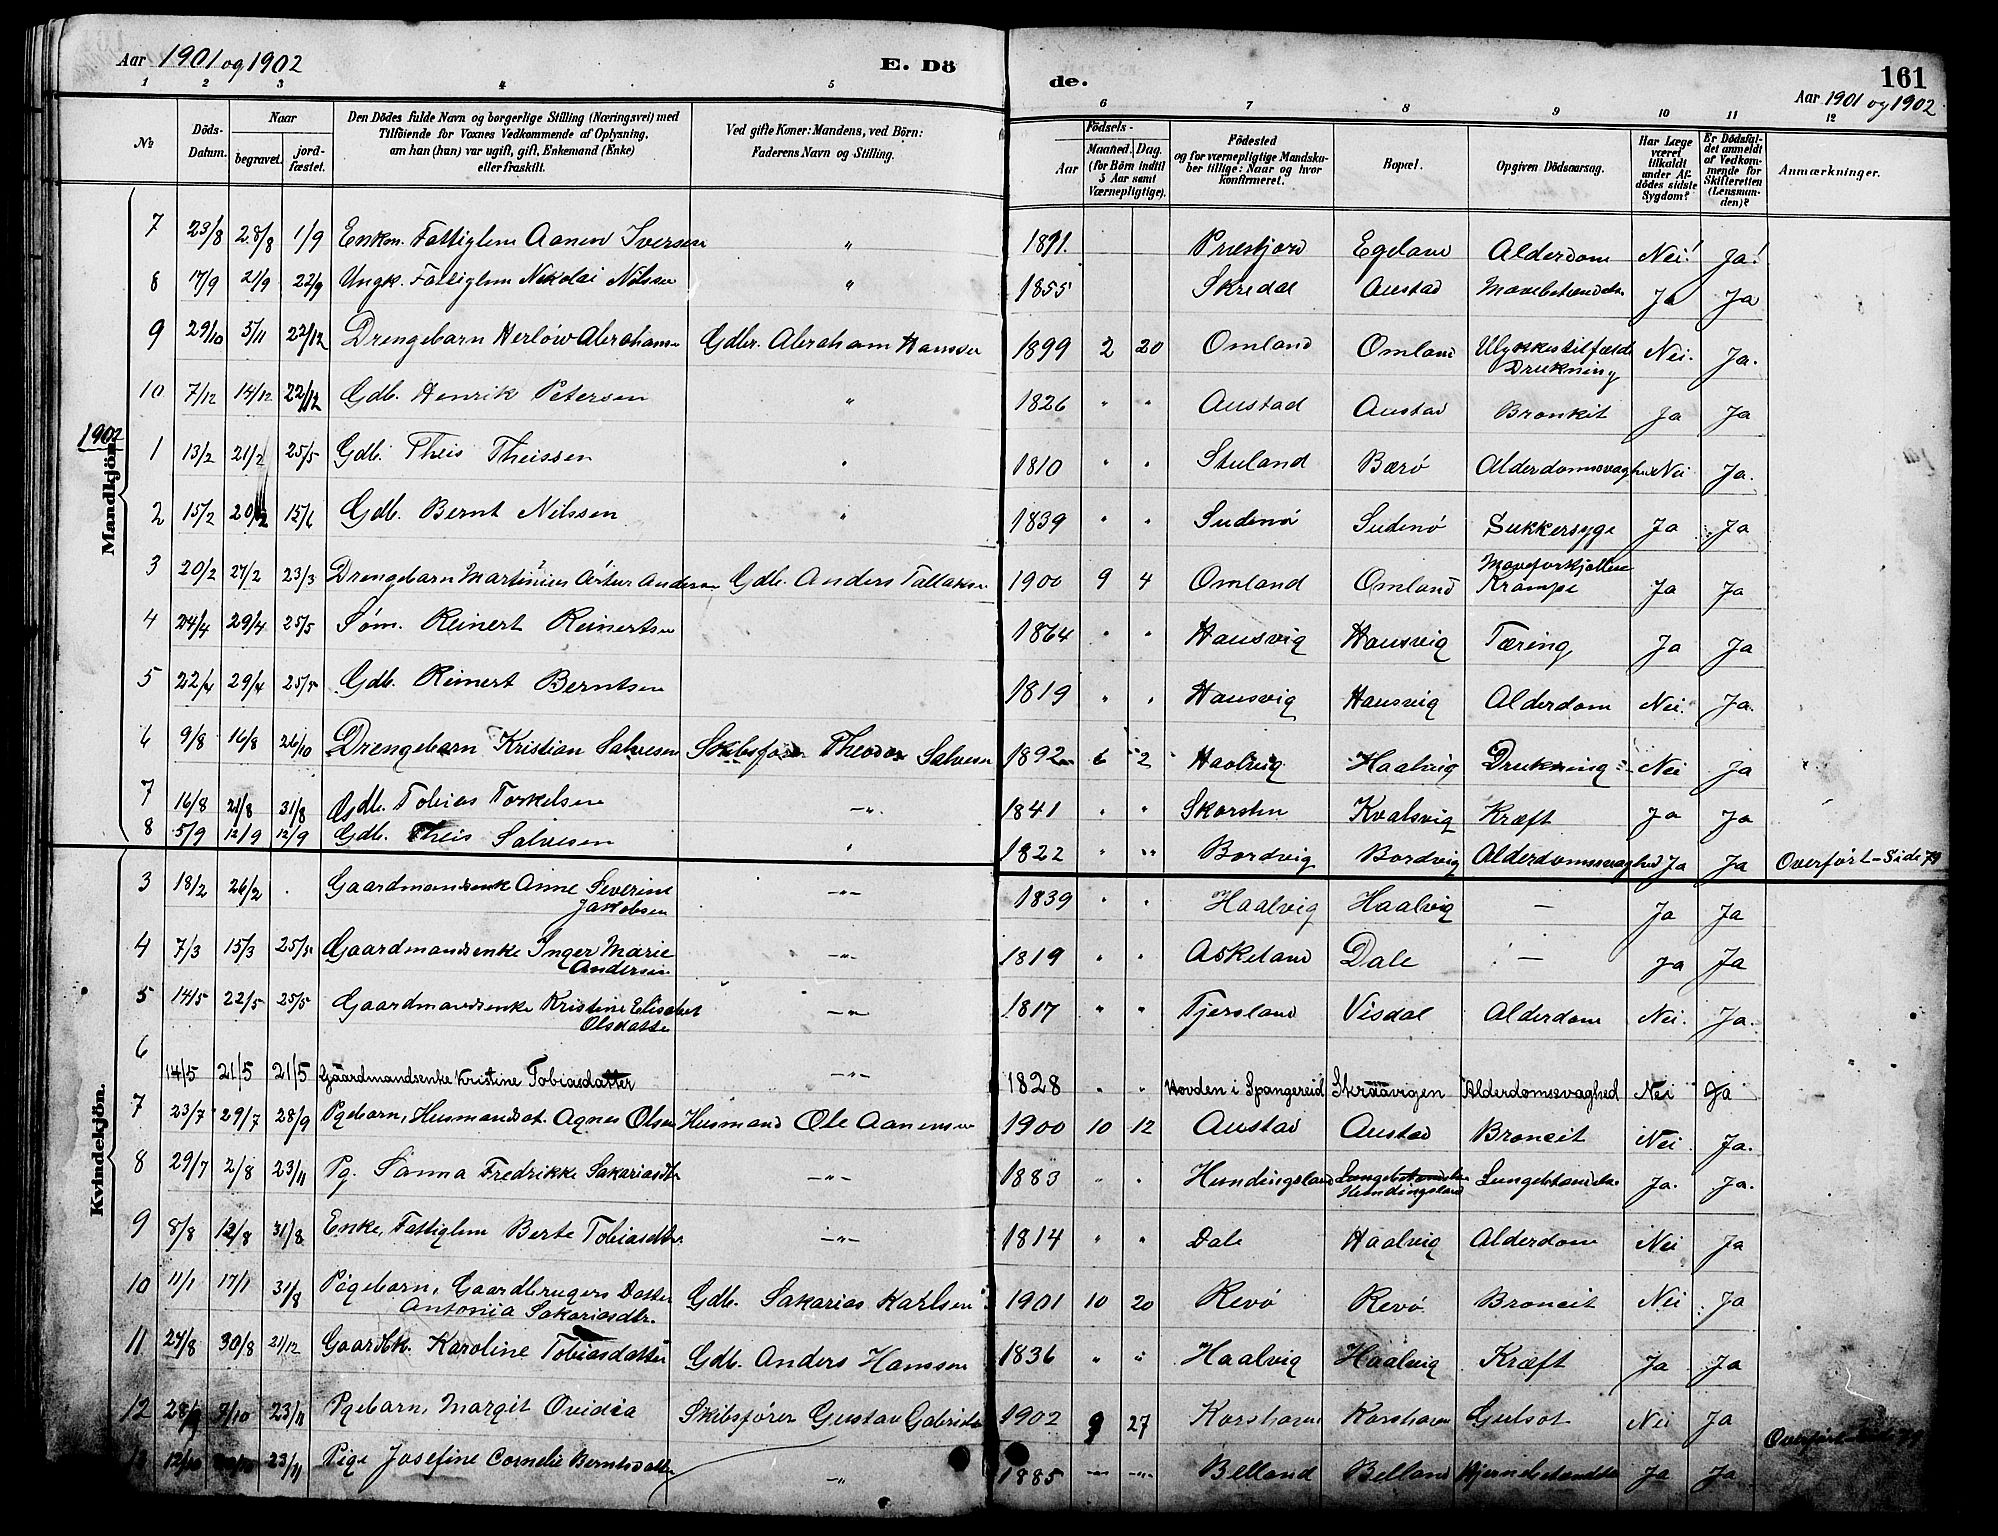 Aar 1901 og 1902
E. Dö
de.
161
Aar 1901 og 1902
1 2 3 4 5 6 7 8 9 10 11 12
№
Döds-Datum.
Naar
begravet.
jord-fæstet.
Den Dödes fulde Navn og borgerlige Stilling (Næringsvei) med
Tilföiende for Voxnes Vedkommende af Oplysning,
om han (hun) var ugift, gift, Enkemand (Enke)
eller fraskilt.
Ved gifte Koner: Mandens, ved Börn:
Faderens Navn og Stilling.
Födsels-
Aar
Maaned. Dag.
(for Börn indtil 5 Aar samt Værnepligtige).
Födested
og for værnepligtige Mandskaber tillige: Naar og hvor konfirmeret.
Bopæl.
Opgiven Dödsaarsag.
Har Læge været tilkaldt under Afdödes sidste Sygdom?
Er Dödsfaldet anmeldt af Vedkommende for Skifteretten (Lensmanden)?
Anmærkninger.
Mandkjön.
7 23/8 28/8 1/9 Enkm. Fattiglem Aanen Iversen " Egeland Alderdom Nei! Ja!
8 17/9 21/9 22/9 Ungk. Fattiglem Nikolai Nilssen " 1855 Skredal Austad Ja Ja
9 29/10 3/11 22/12 Drengebarn Herlöw Abrahams Gdbr. Abraham Hanssen 1899 2 20 Omland Omland Ulykkestilfælde Drukning Nei. Ja.
10 7/12 14/12 22/12 Gdb. Henrik Petersen " 1826 " " Austad Austad Bronkit Ja Ja
1902
1 13/2 21/2 25/5 Gdb. Theis Theissen " 1810 " " Stuland Bærö Alderdomssvaghed Nei Ja.
2 15/2 20/2 15/6 Gdb. Bernt Nilssen " 1839 " " Sudinö Sudinö Sukkersyge Ja Ja
3 20/2 27/2 23/3 Drengebarn Martinius Artur Andersen Gdb. Anders Tallaksen 1900 9 4 Omland Omland Krampe Ja Ja
4 24/4 29/4 25/5 Söm. Reinert Reinertsen 1864 " " Hausvig Hausvig Tæring Ja Ja
5 22/4 29/4 25/5 Gdb. Reinert Berntsen 1819 " " Hausvig Hausvig Alderdom Nei. Ja.
6 9/8 16/8 26/10 Drengebarn Kristian Salvesen Skibsförer Theodor Salvesen 1892 6 2 Haalvig Haalvig Drukning Nei Ja
7 16/8 21/8 31/8 Gdb. Tobias Torkelsen -"- 1841 " " Skorsten Kvalsvig Kræft Ja Ja
8 5/9 12/9 12/9 Gdb. Theis Salvesen " 1822 " " Bordvig Bordvig Alderdomssvaghed Ja Ja Overfört - Side 79
Kvindekjön.
3 18/2 26/2 . Gaardmandsenk Anne Severine Jakobsen -"- 1839 " " Haalvig Haalvig — Ja Ja
4 7/3 15/3 25/5 Gaardmandsenke Inger Marie Andersen -"- 1819 " " Askeland Dale — Ja Ja
5 14/5 22/5 25/5 Gaardmandsenke Kristine Elisabet Olsdatter -"- 1817 " " Tjersland Visdal Alderdom Nei. Ja.
6 14/5 21/5 21/5 Gaardmandsenke Kristine Tobiasdatter -"- 1828 " " Hovden i Spangereid Skraavigen Alderdomssvaghed Nei Ja
7 23/7 29/7 28/9 Pgebarn, Husmandsdt. Agnes Olsen Husmand Ole Aanensen 1900 10 12 Austad Austad Broncit Nei Ja.
8 29/7 2/8 23/11 Pg. Sanna Fredrikke Sakariasdtr -"- 1883 " " Hundingsland Hundingsland Lungebetændelse Ja. Ja.
9 8/8 12/8 31/8 Enke, Fattiglem Berte Tobiasdtr. -"- 1814 " " Dale Haalvig Alderdom Nei Ja
10 11/1 17/1 31/8 Pigebarn, Gaardbrugers Datter Antonia Sakariasdtr. Gdb. Sakarias Karlsen 1901 10 20 Revö Revö. Broncit Nei Ja
11 24/8 30/8 21/12 Gaardbk. Karoline Tobiasdatter Gdb. Anders Hanssen 1836 " " Haalvig Haalvig Kræft Ja Ja
12 3/10 23/11 Pgebarn, Margit Ovidia Skibsförer Gustav 1902 9 27 Korshavn Korshavn Gulsot Nei Ja
12/10 23/11 Pige Josefine Cornelie Berntsdatter -"- 1885 -"- -"- Belland Belland Ja Ja